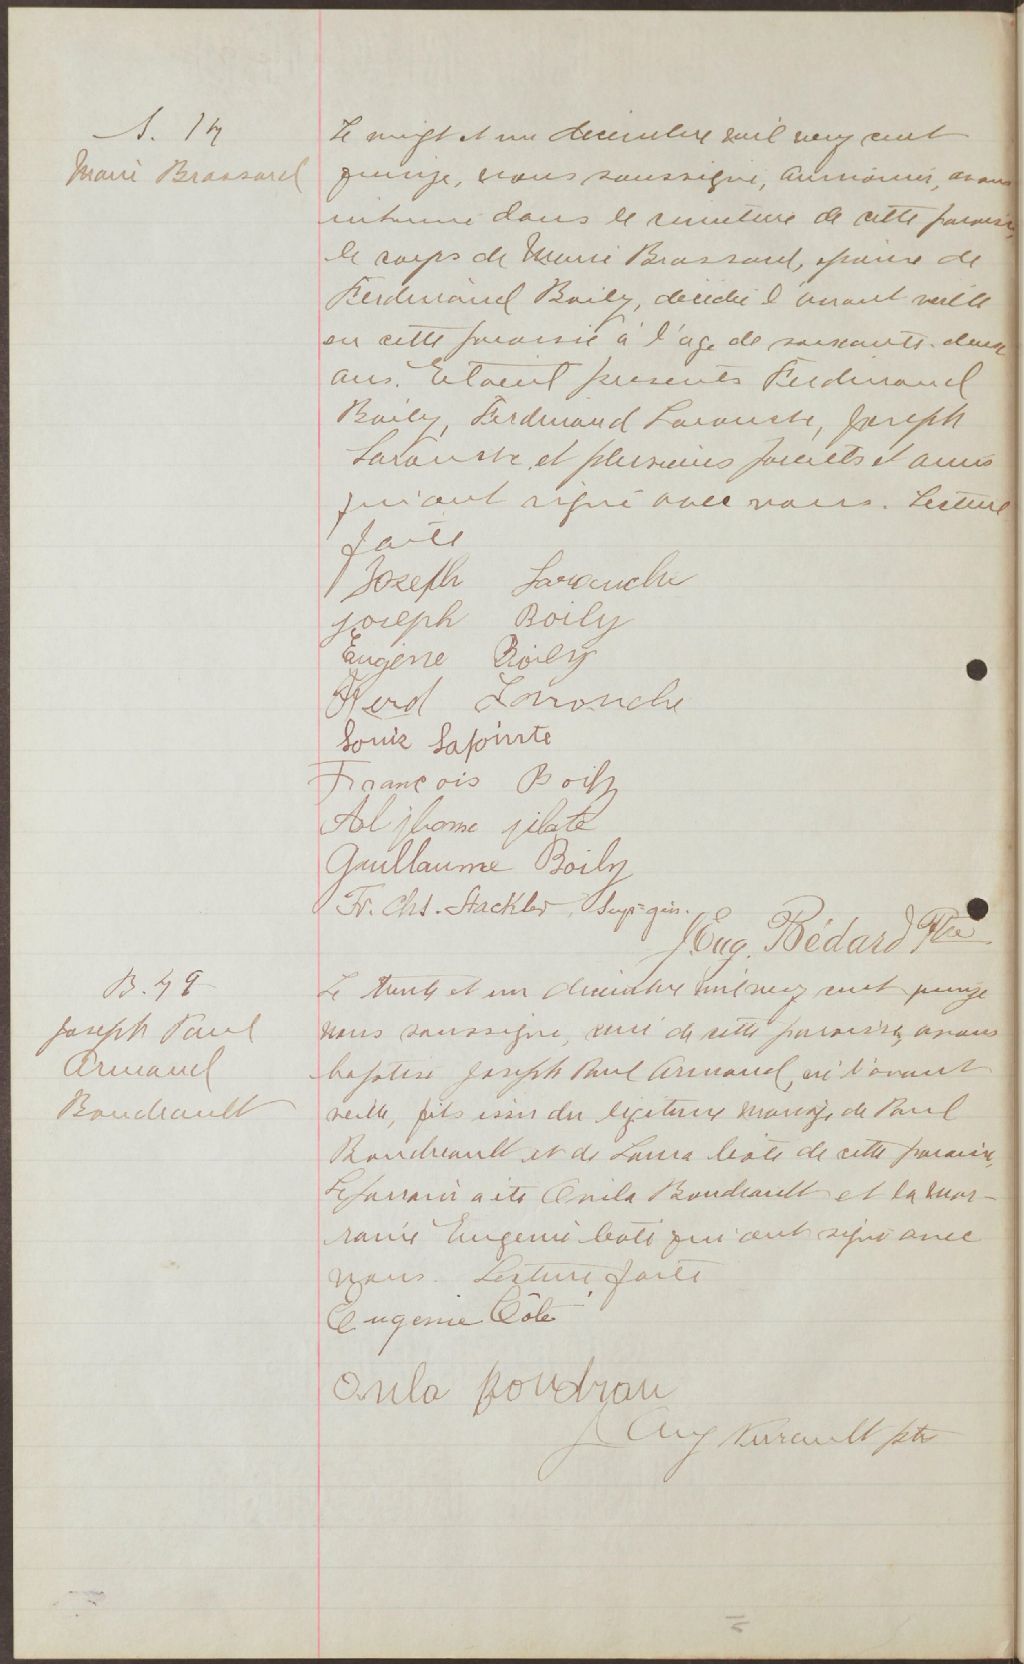 S. 14
Marie Brassard
Le vingt et un decembre mil neuf cent
quinze, nous soussigné, aumônier, avons
inhumé dans le cimetière de cette paroisse,
le corps de Marie Brassard, épouse de
Ferdinand Boily, décédée l'avant veille
en cette paroisse à l'age de soixante-deux
ans. Etaient présents Ferdinand
Boily, Ferdinand Larouche, Joseph
Larouche et plusieurs parents et amis
qui ont signé avec nous. Lecture
faite
Joseph Larouche
joseph Boily
Eugène Boily
Ferd Larouche
Louis Lapointe
François Boily
Alphonse pilote
Guillaume Boily
Fr. Chs. Stackler, Sup-gén.
J. Eug. Bédard Ptre
B. 49
Joseph Paul
Armand
Boudreault
Le trente et un decembre mil neuf cent quinze
nous soussigné, curé de cette paroisse, avons
baptisé Joseph Paul Armand, né l'avant
veille, fils issu du légitime mariage de Paul
Boudreault et de Laura Coté de cette paroisse,
Le parrain a été Onila Boudreault et la mar-
raine Eugenie Coté qui ont signé avec
nous. Lecture faite
Eugenie Côté
Onila Boudrau
J Aug Verreault ptr